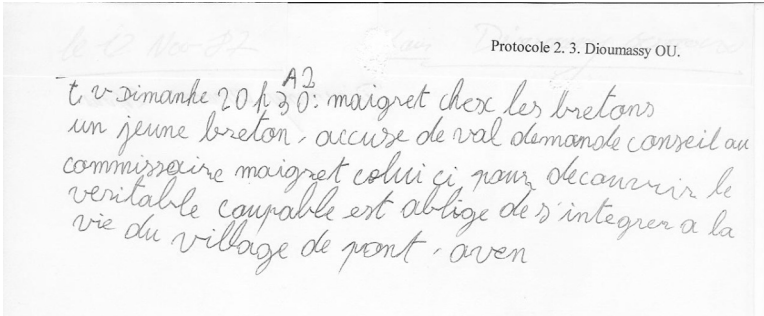 Protocole 2. 3. Dioumassy OU.
A2
t, v Dimanhe 20h,30: maigret chex les bretons
un jeune breton, accuse de val demande conseil au
commissaire maigret celui ci pour decouvrir le
veritable caupable est ablige de s'integrer a la
vie du village de pont, aven